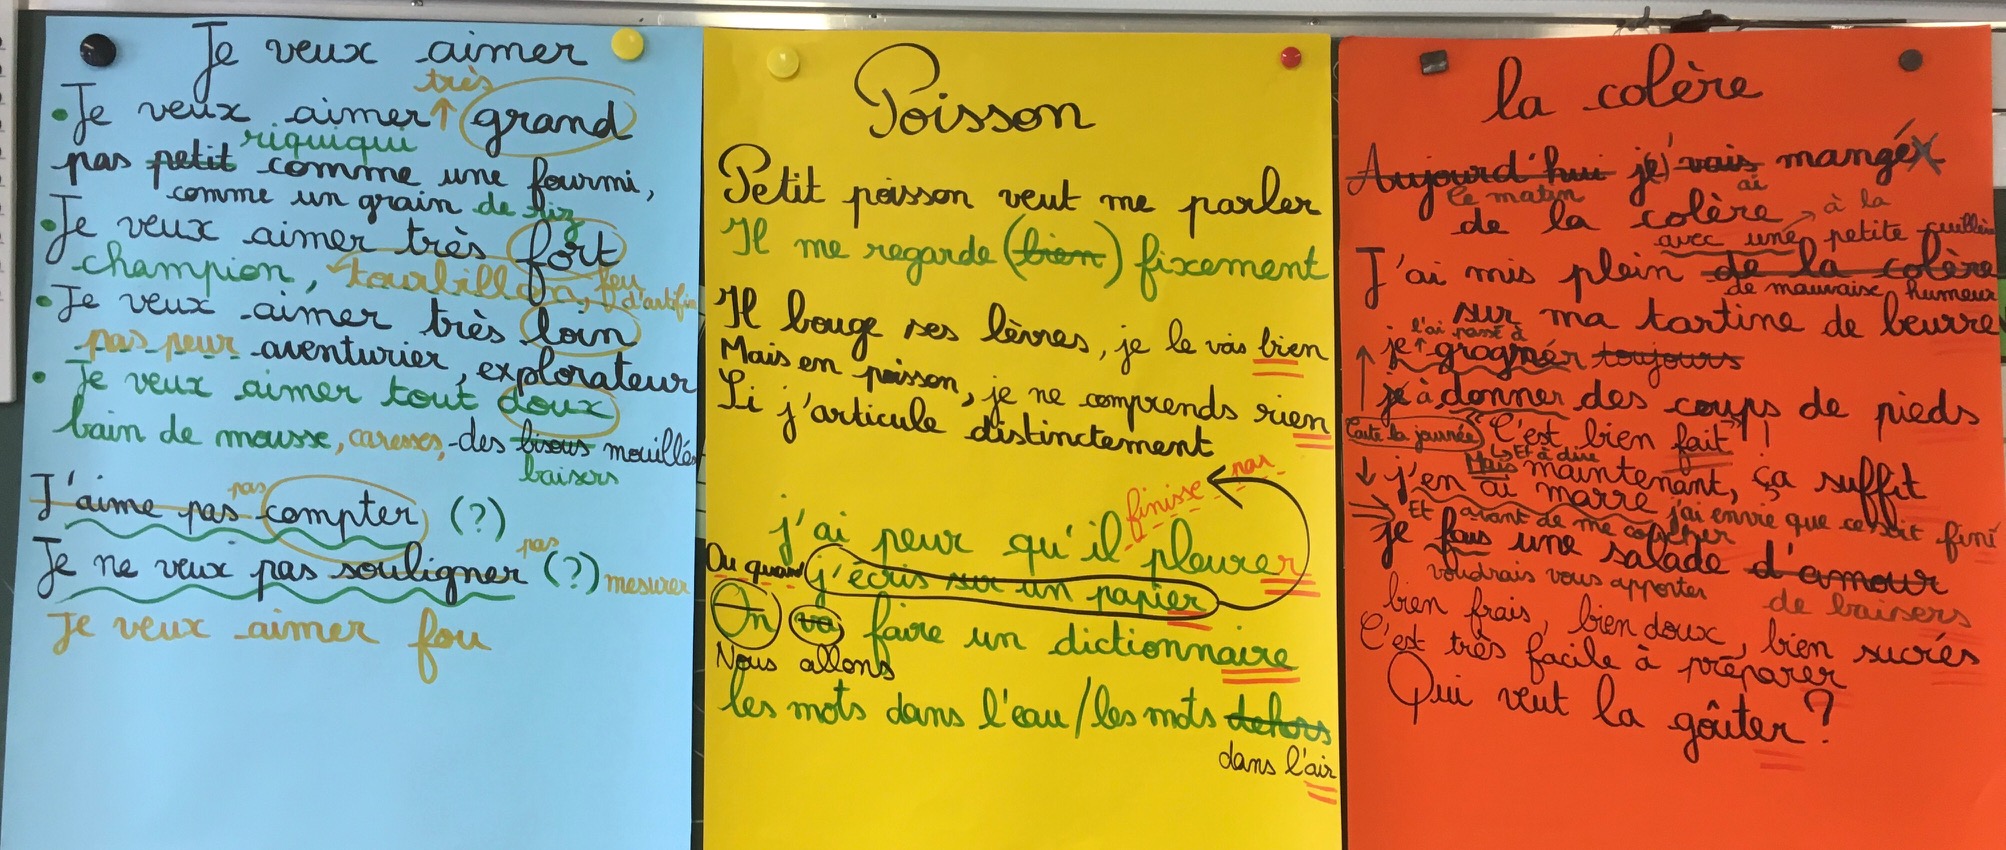 Je veux aimer
très
• Je veux aimer ↑ grand
riquiqui
pas petit comme une fourmi,
comme un grain de riz
• Je veux aimer très fort
champion, tourbillon, feu d'artifice
• Je veux aimer très loin
pas peur aventurier, explorateur
• Je veux aimer tout doux
bain de mousse, caresses, des bisous mouillés
baisers
pas
J'aime pas compter (?)
pas
Je ne veux pas souligner (?) mesurer
Je veux aimer fou
Poisson
Petit poisson veut me parler
Il me regarde (bien) fixement
Il bouge ses lèvres, je le vois bien
Mais en poisson, je ne comprends rien
Si j'articule distinctement
finisse par
j'ai peur qu'il pleurer
Ou quand j'écris sur un papier
On va faire un dictionnaire
Nous allons
les mots dans l'eau / les mots dehors
dans l'air
la colère
Aujourd'hui je vais mangé
ce matin ai
de la colère à la
avec une petite cuillère
J'ai mis plein de la colère
de mauvaise humeur
sur ma tartine de beurre
j'ai passé à
je grogner toujours
je à donner des coups de pieds
toute la journée "C'est bien fait" !
Et à dire
Mais maintenant, ça suffit
j'en ai marre j'ai envie que ce soit fini
Et avant de me coucher
je fais une salade d'amour
voudrais vous apporter de baisers
bien frais, bien doux, bien sucrés
C'est très facile à préparer
Qui veut la goûter ?